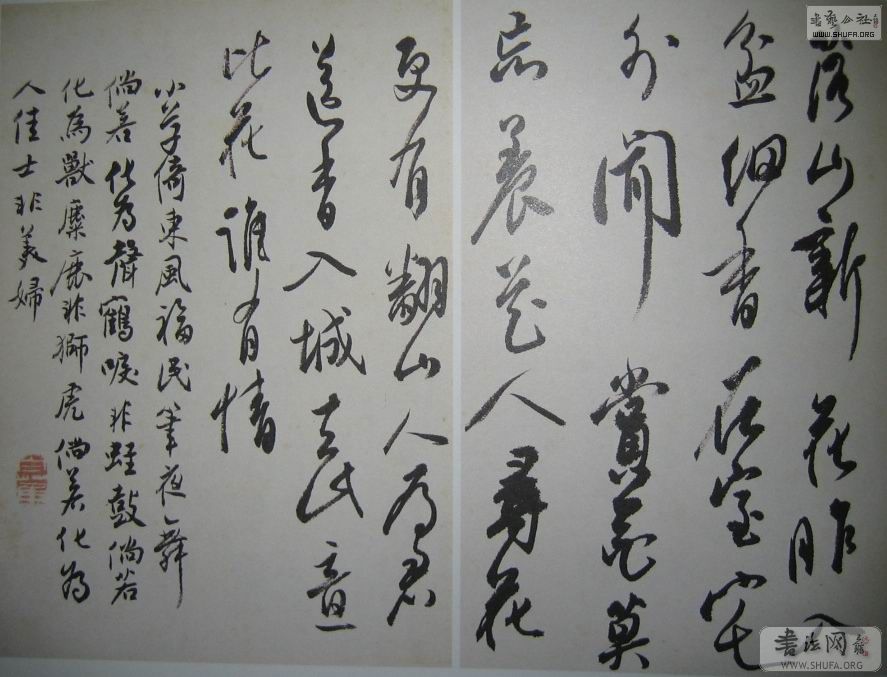 山新花昨入
盆細香在室宅
外聞賞花莫
忘養花人尋花
更有翻山人為君
送香入城去此意
比花誰有情
小草倚東風福民筆夜舞
倘若化為聲鶴唳非蛙鼓倘若
化為獸麋鹿非獅虎倘若化為
人佳士非美婦
書藝公社
WWW.SHUFA.ORG
書法网
WWW.SHUFA.ORG